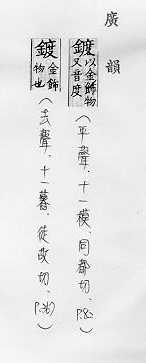 廣韻
鍍以金飾物又音度(平聲、十一模、同都切、P.82)
鍍金飾物也(去聲、十一暮、徒故切、P.367)